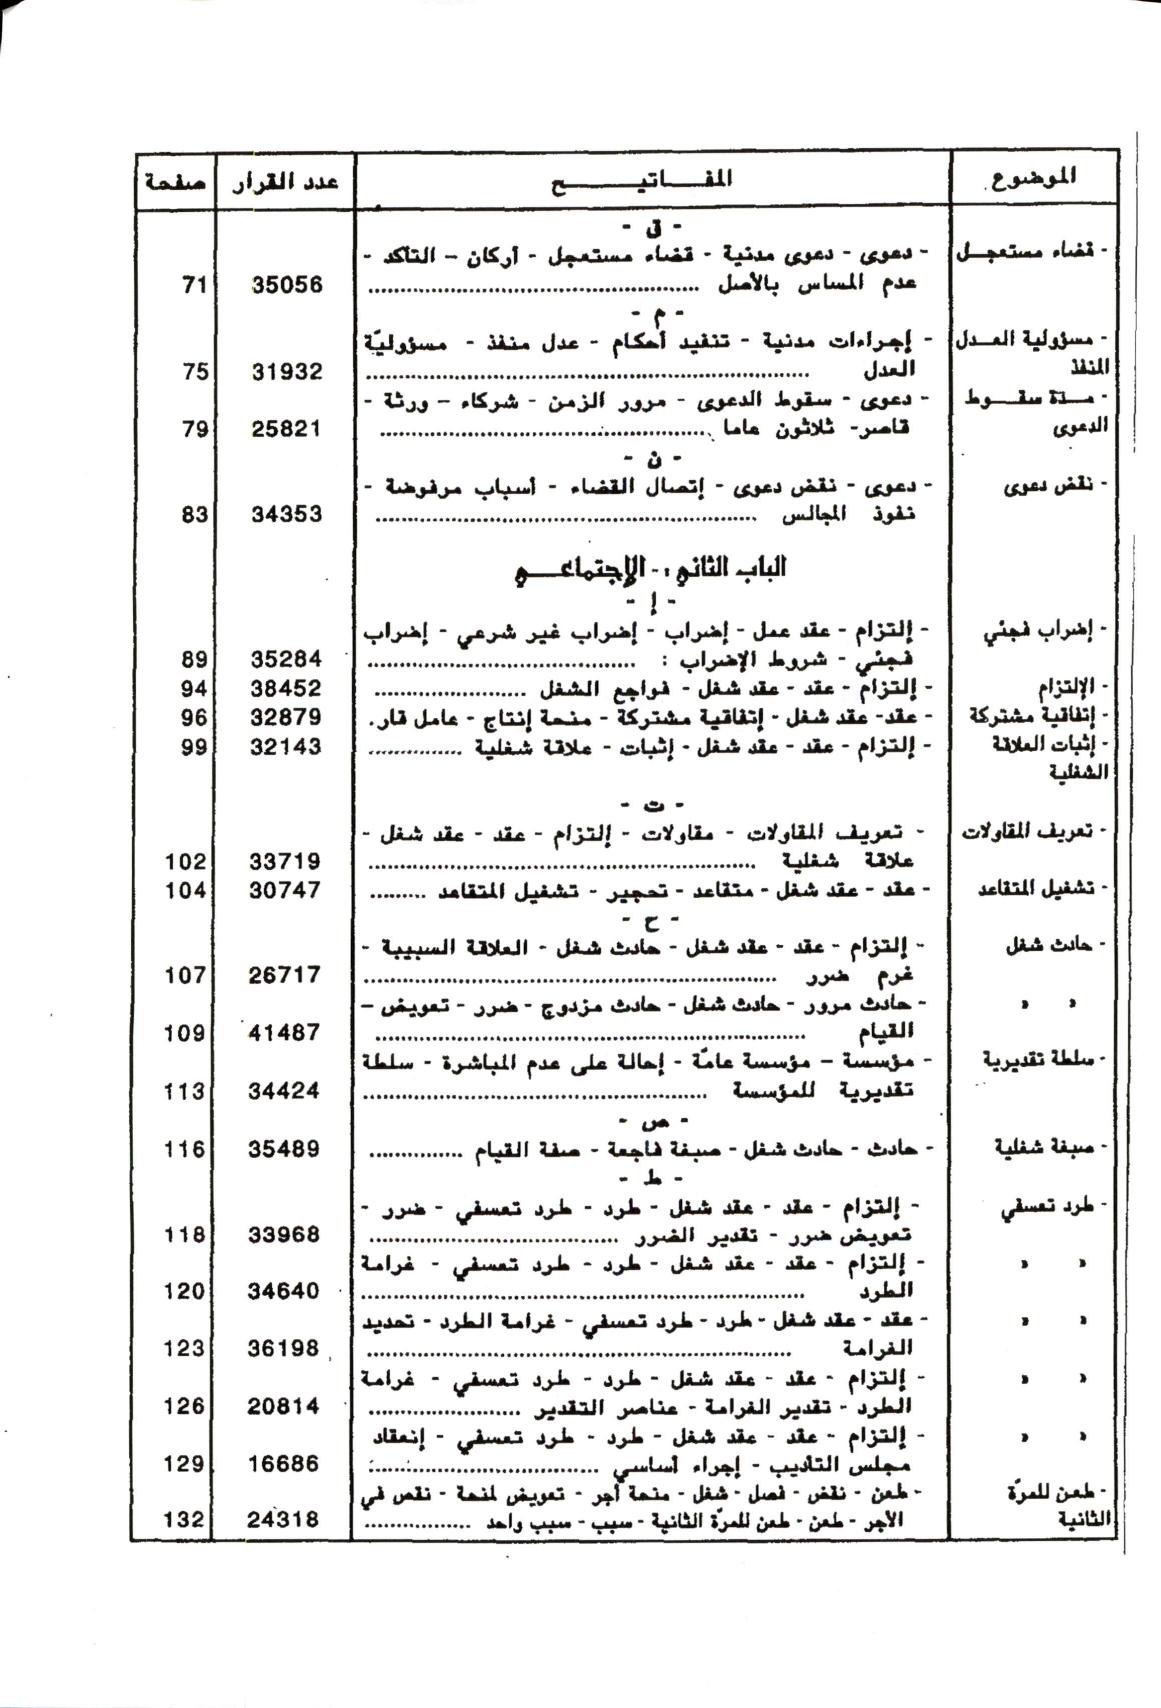 الموضوع المفـــاتيـــــــح عدد القرار صفحة
- ق -
- قضاء مستعجــل - دعوى - دعوى مدنية - قضاء مستعجل - أركان – التأكد -
عدم المساس بالأصل ................ 35056 71
- م -
- مسؤولية العــدل - إجراءات مدنية - تنفيد أحكام - عدل منفذ - مسؤوليّة
المنفذ العدل ................ 31932 75
- مــدة سقــوط - دعوى - سقوط الدعوى - مرور الزمن - شركاء – ورثة -
الدعوى قاصر- ثلاثون عاما ................ 25821 79
- ن -
- نقض دعوى - دعوى - نقض دعوى - إتصال القضاء - أسباب مرفوضة -
نفوذ المجالس ................ 34353 83
الباب الثاني :- الإجتماعــــي
- إ -
- إضراب فجئي - إلتزام - عقد عمل - إضراب - إضراب غير شرعي - إضراب
فجئي - شروط الإضراب : ................ 35284 89
- الإلتزام - إلتزام - عقد - عقد شغل - فواجع الشغل ................ 38452 94
- إتفاقية مشتركة - عقد- عقد شغل - إتفاقية مشتركة - منحة إنتاج - عامل قار. 32879 96
- إثبات العلاقة - إلتزام - عقد - عقد شغل - إثبات - علاقة شغلية ................ 32143 99
الشغلية
- ت -
- تعريف المقاولات - تعريف المقاولات - مقاولات - إلتزام - عقد - عقد شغل -
علاقة شغلية ................ 33719 102
- تشغيل المتقاعد - عقد - عقد شغل - متقاعد - تحجير - تشغيل المتقاعد ......... 30747 104
- ح -
- حادث شغل - إلتزام - عقد - عقد شغل - حادث شغل - العلاقة السببية -
غرم ضرر ................ 26717 107
" " - حادث مرور - حادث شغل - حادث مزدوج - ضرر - تعويض –
القيام ................ 41487 109
- سلطة تقديرية - مؤسسة – مؤسسة عامّة - إحالة على عدم المباشرة - سلطة
تقديرية للمؤسسة ................ 34424 113
- ص -
- صبغة شغلية - حادث - حادث شغل - صبغة فاجعة - صفة القيام ................ 35489 116
- ط -
- طرد تعسفي - إلتزام - عقد - عقد شغل - طرد - طرد تعسفي - ضرر -
تعويض ضرر - تقدير الضرر ................ 33968 118
" " - إلتزام - عقد - عقد شغل - طرد - طرد تعسفي - غرامة
الطرد ................ 34640 120
" " - عقد - عقد شغل - طرد - طرد تعسفي - غرامة الطرد - تحديد
الغرامة ................ 36198 123
" " - إلتزام - عقد - عقد شغل - طرد - طرد تعسفي - غرامة
الطرد - تقدير الغرامة - عناصر التقدير ................ 20814 126
" " - إلتزام - عقد - عقد شغل - طرد - طرد تعسفي - إنعقاد
مجلس التأديب - إجراء أساسي ................ 16686 129
- طعن للمرّة - طعن - نقض - فصل - شغل - منحة أجر - تعويض لمنحة - نقص في
الثانية الأجر - طعن - طعن للمرّة الثانية - سبب - سبب واحد ................ 24318 132